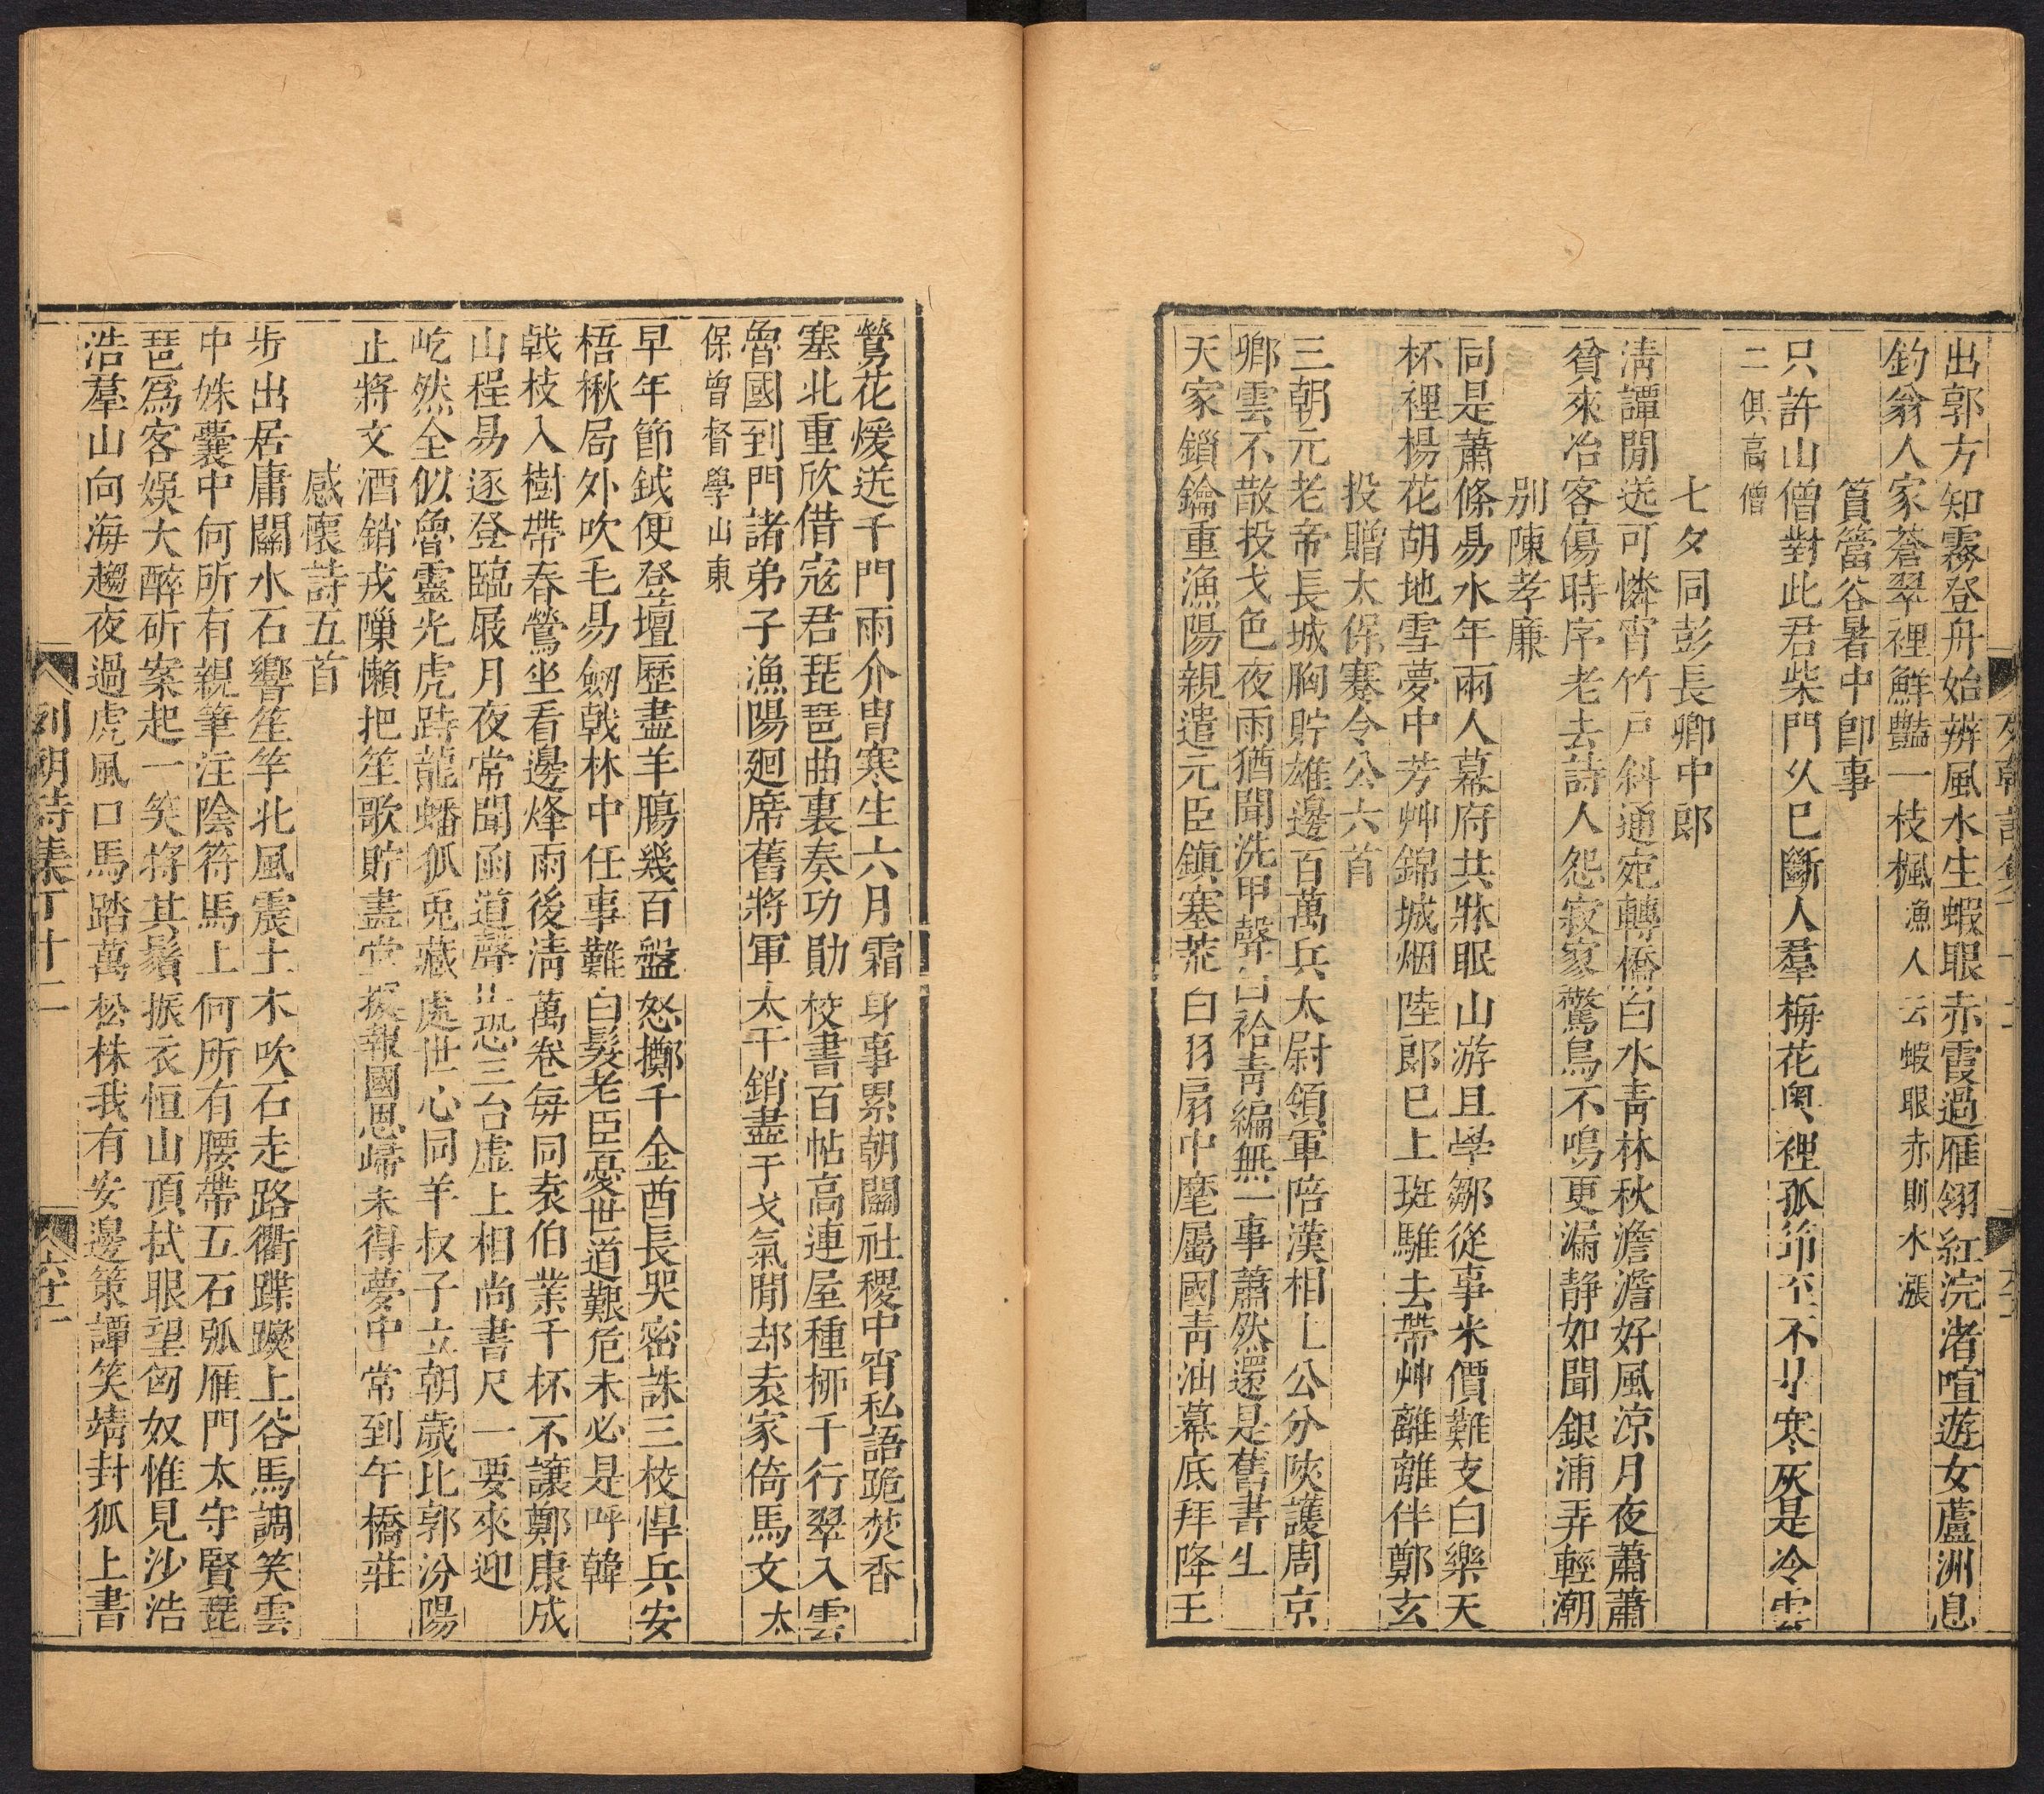 出郭方知霧登舟始辨風水生蝦眼赤霞過雁翎紅浣渚喧遊女蘆洲息
釣翁人家蒼翠裡鮮豔一枝楓漁人云蝦眼赤則水漲
篔簹谷暑中卽事
只許山僧對此君柴門乆已斷人羣梅花奧裡孤
不
寒灰是冷雲
二俱高僧
七夕同彭長卿中郎
淸譚閒送可憐宵竹戸斜通宛轉橋白水靑林秋澹澹好風涼月夜蕭蕭
貧來冶客傷時序老去詩人怨寂寥驚鳥不鳴更漏静如聞銀浦弄輕潮
别陳孝廉
同是蕭條易水年兩人幕府共牀眠山游且學鄒從事米價難支白樂天
杯裡楊花胡地雪夢中芳艸錦城烟陸郎已上斑騅去帶艸離離伴鄭玄
投贈太保蹇令公六首
三朝元老帝長城胸貯雄邊百萬兵太尉領軍陪漢相上公分陝護周京
鄉雲不散投戈色夜雨猶聞洗甲聲白袷靑編無一事蕭然還是舊書生
天家鎖鑰重漁陽親遣元臣鎮塞荒白羽扇中麾屬國靑油幕底拜降王
鶯花煖送千門雨介冑寒生六月霜身事累朝關社稷中宵私語跪焚香
塞北重欣借寇君琵琶曲裏奏功勛校書百帖高連屋種栁千行翠入雲
魯國到門諸弟子漁陽廻席舊將軍太干銷盡干戈氣閒却袁家倚馬文太
保曾督學山東
早年節鉞便登壇歷盡羊腸幾百盤怒擲千金酋長哭密誅三校悍兵安
梧楸局外吹毛易劒戟林中任事難白髮老臣憂世道艱危未必是呼韓
戟枝入樹帶春鶯坐看邊烽雨後淸萬卷每同袁伯業千杯不讓鄭康成
山程易逐登臨屐月夜常聞函道聲止恐三台虚上相尚書尺一要來迎
屹然全似魯靈光虎跱龍蟠狐兎藏處世心同羊叔子立朝歲比郭汾陽
止將文酒銷戎隟懶把笙歌貯畫堂搃報國恩歸未得夢中常到午橋莊
感懷詩五首
步出居庸關水石響笙竽北風震土木吹石走路衢蹀躞上谷馬調笑雲
中姝囊中何所有親筆注陰符馬上何所有腰帶五石弧雁門太守賢琵
琶爲客娛大醉斫案起一笑捋其鬚振衣恒山頂拭眼望匈奴惟見沙浩
浩羣山向海趨夜過虎風口馬踏萬松株我有安邊策譚笑靖封狐上書
列朝詩集丁十二
六十一